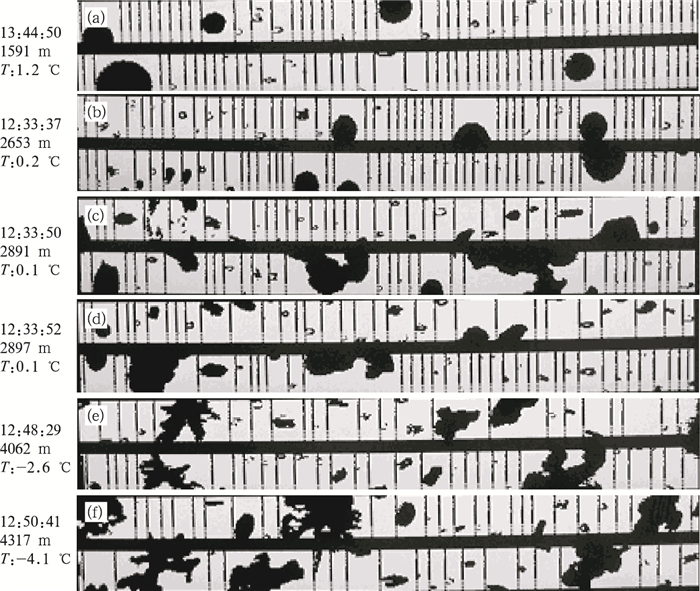 (a)
13:44:50
1591 m
T:1.2 ℃
(b)
12:33:37
2653 m
T:0.2 ℃
(c)
12:33:50
2891 m
T:0.1 ℃
(d)
12:33:52
2897 m
T:0.1 ℃
(e)
12:48:29
4062 m
T:−2.6 ℃
(f)
12:50:41
4317 m
T:−4.1 ℃